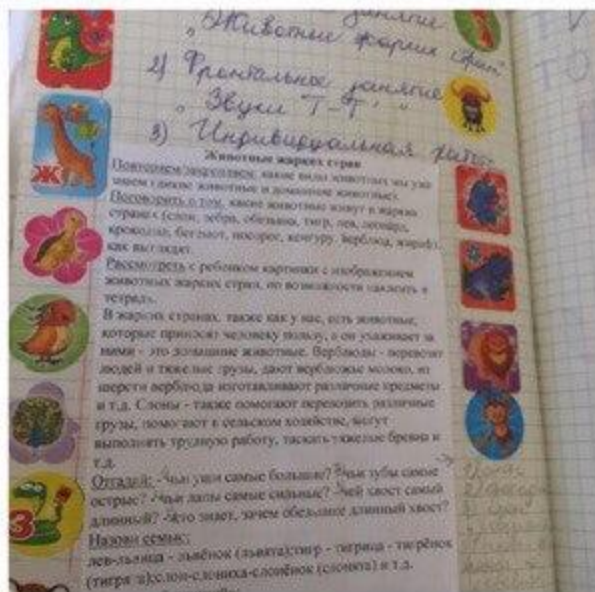 занятие
„Животные жарких стран"
2) Фронтальное занятие
„Звуки Т-Т' "
3) Индивидуальная работа
Животные жарких стран
Повторяем какие виды животных мы уже
знаем (дикие животные и домашние животные).
Поговорить о том, какие животные живут в жарких
странах (слон, зебра, обезьяна, тигр, лев, леопард,
крокодил, бегемот, носорог, кенгуру, верблюд, жираф),
как выглядят.
Рассмотреть с ребенком картинки с изображением
животных жарких стран, по возможности наклеить в
тетрадь.
В жарких странах, также как у нас, есть животные,
которые приносят человеку пользу, а он ухаживает за
ними - это домашние животные. Верблюды - перевозят
людей и тяжелые грузы, дают верблюжье молоко, из
шерсти верблюда изготавливают различные предметы
и т.д. Слоны - также помогают перевозить различные
грузы, помогают в сельском хозяйстве, могут
выполнять трудную работу, таскать тяжелые бревна и
т.д.
Отгадай: - чьи уши самые большие? чьи зубы самые
острые? - чьи лапы самые сильные? - чей хвост самый
длинный? - кто знает, зачем обезьяне длинный хвост?
Назови семью:
лев-львица - львёнок (львята);тигр - тигрица - тигрёнок
(тигрята);слон-слониха-слонёнок (слонята) и т.д.
Ж
З